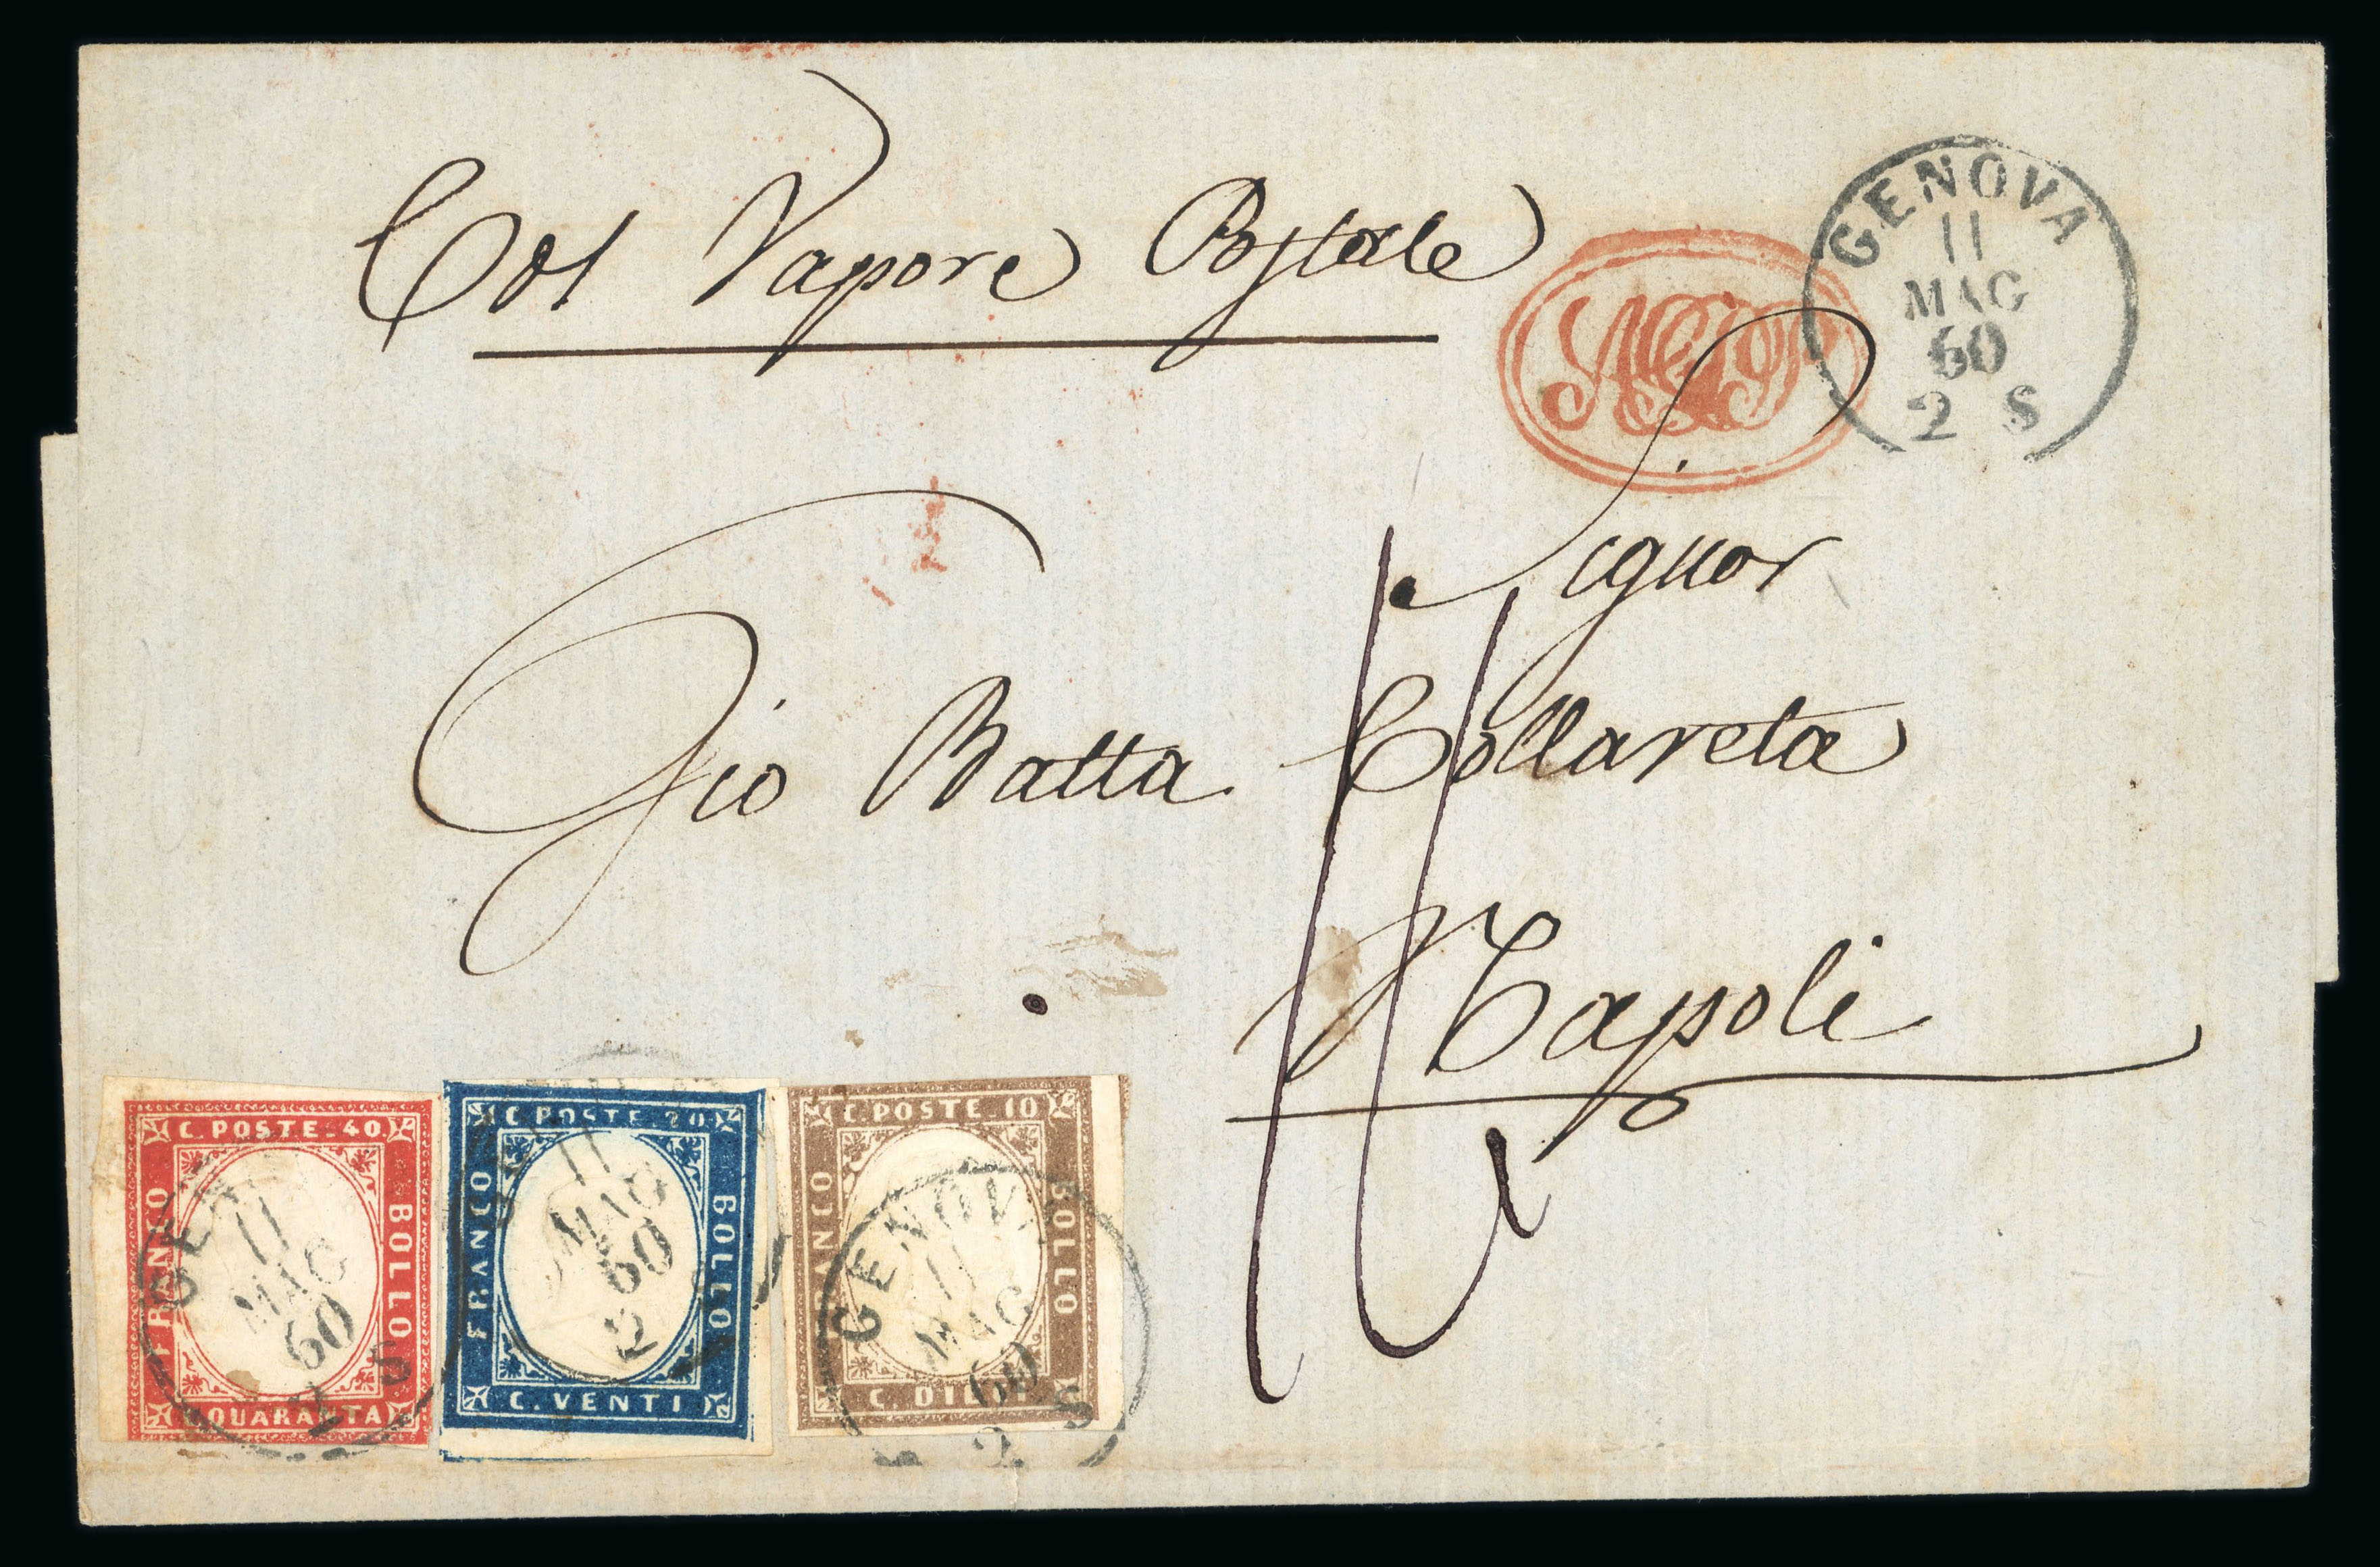 Col Vapore Postale
GENOVA
11
MAG
60
2 S
Signor
Gio Batta Collareta
Napoli
C. POSTE. 40
FRANCO
BOLLO
C. QUARANTA
GEN
11
MAG
60
2 S
C. POSTE. 20
FRANCO
BOLLO
C. VENTI
11
MAG
60
2
C. POSTE. 10
FRANCO
BOLLO
C. DIECI
GENOVA
11
MAG
60
2 S